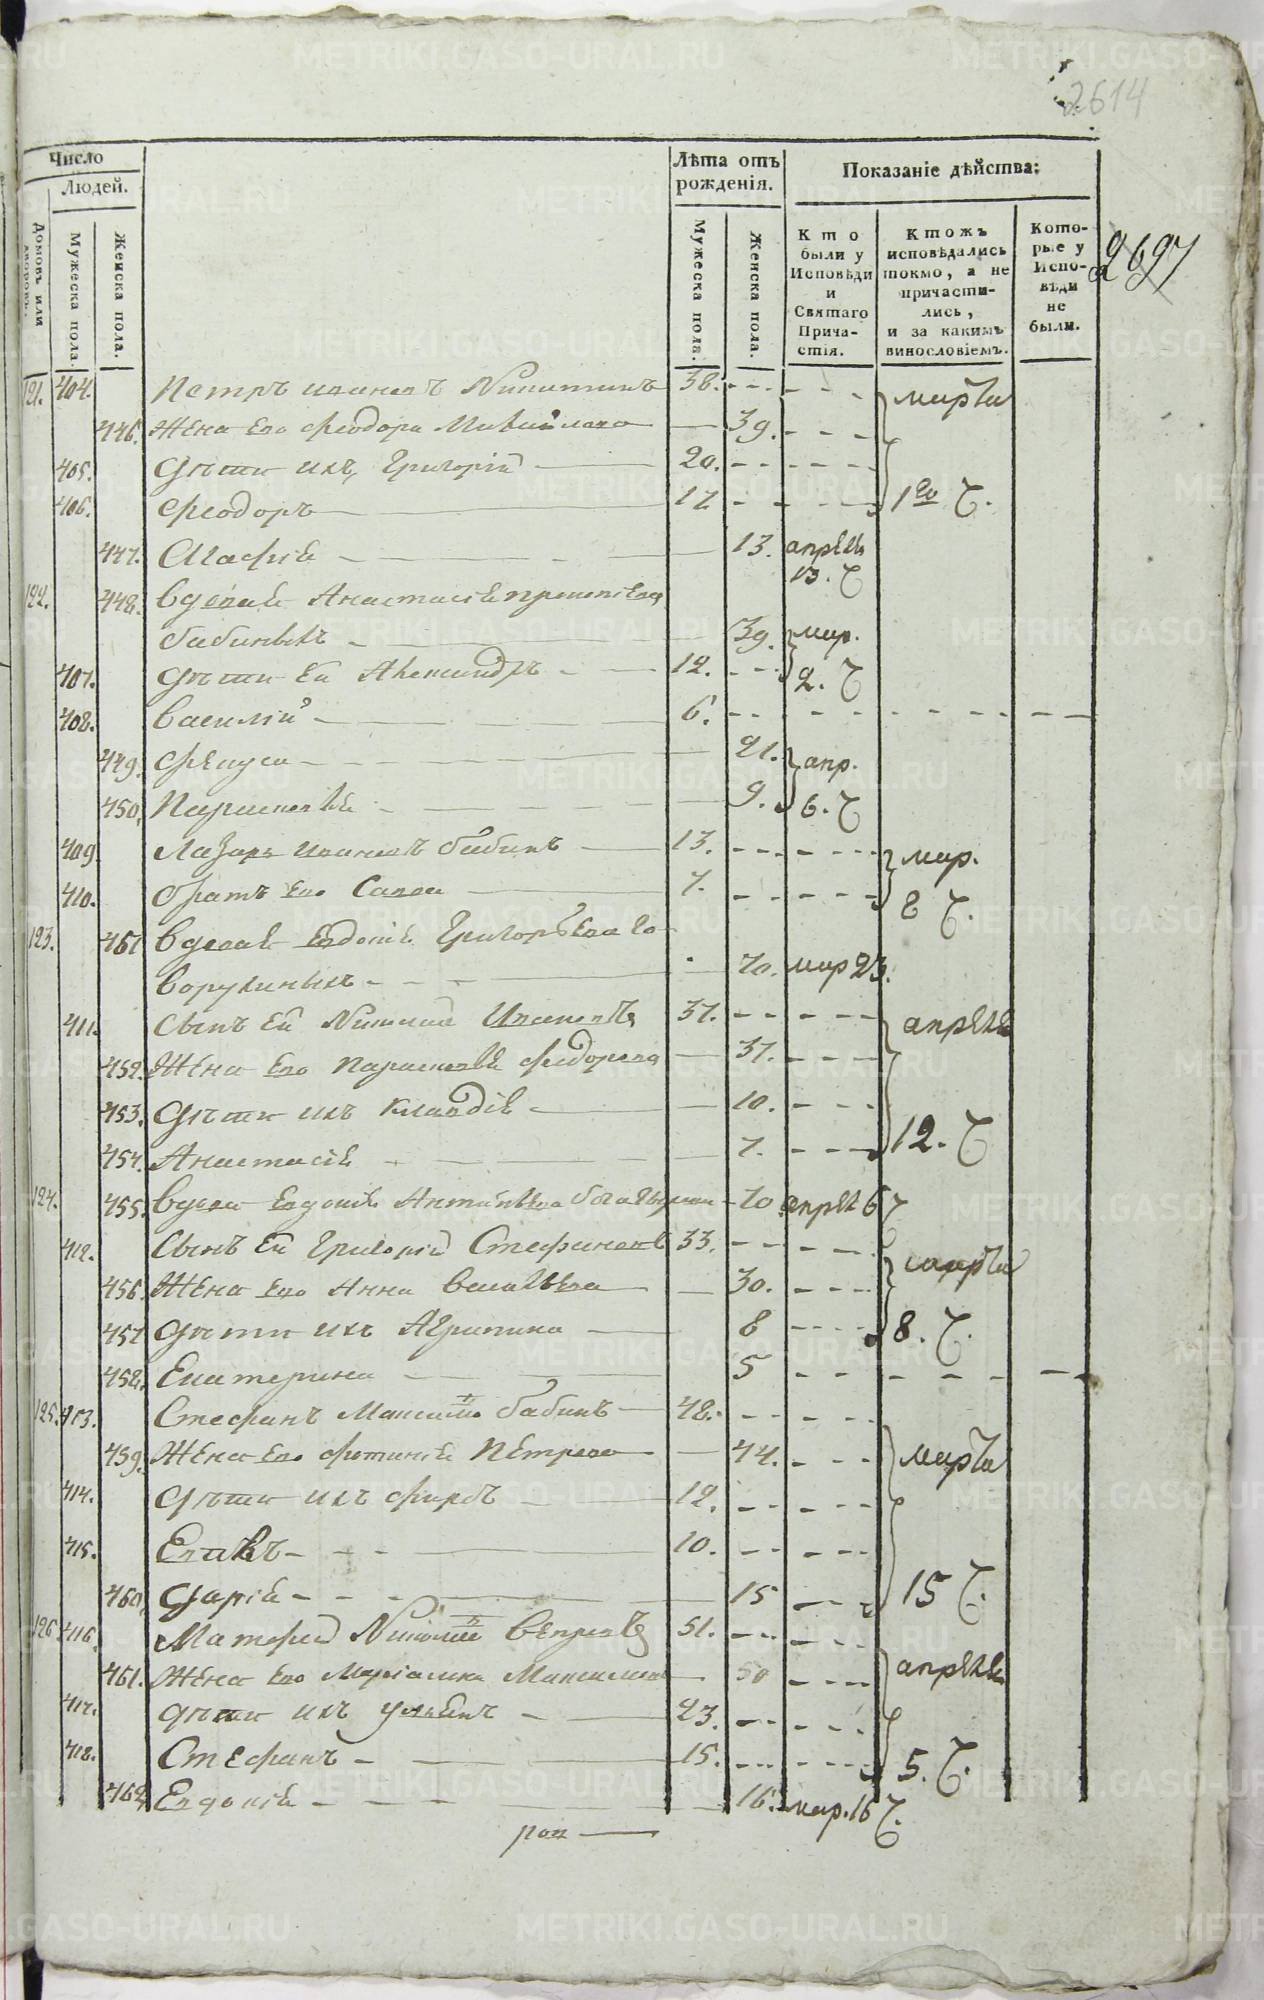 2614
Число
Людей.
Домовъ или дворовъ.
Мужеска пола.
Женска пола.
Лѣта отъ рожденія.
Мужеска пола.
Женска пола.
Показаніе дѣйства:
Кто были у Исповѣди и Святаго Причастія.
Ктожъ исповѣдались токмо, а не причастились, и за какимъ винословіемъ.
Которые у Исповѣди не были.
2697
121. 404. Петръ Ивановъ Никитинъ 38. марта
446. Жена его Феодора Михайлова 39.
405. Дѣти ихъ, Григорій 20.
406. Феодоръ 17 1го Ч.
447. 13. апрѣля
13. Ч
122. 448. Вдова Анастасія Прокопіева
Бабиныхъ 39. мар.
407. Дѣти ея Александръ 12. 2. Ч
408. Василій 6.
449. 21. апр.
450. Параскева 9. 6. Ч
409. Лазарь Ивановъ Бабинъ 13. мар.
410. Братъ его Савва 7. 8 Ч.
123. 451 Вдова Евдокія Григорьева Го-
ворухиныхъ 70. мар 23.
411. Сынъ ея Николай Ивановъ 37. апрѣля
452. Жена его Параскева Феодорова 37.
453. Дѣти ихъ Клавдія 10.
454. Анастасія 7. 12. Ч
124. 455. Вдова Евдокія 70 апрѣл 6 Ч
412. Сынъ ея Григорій Стефановъ 33. марта
456. Жена его Анна Васильева 30.
457 Дѣти ихъ Агрипина 8 8. Ч.
458. Екатерина 5
125. 413. Стефанъ Бабинъ 48.
459. Жена его Фотинія Петрова 44. марта
414. Дѣти ихъ Фирсъ 12.
415. 10.
460. Дарія 15 15 Ч.
126 416. Матфей 51.
461. Жена его Маріамна Максимова 50 апрѣля
417. Дѣти ихъ 23.
418. Стефанъ 15. 5. Ч.
462. Евдокія 16. мар. 16 Ч.